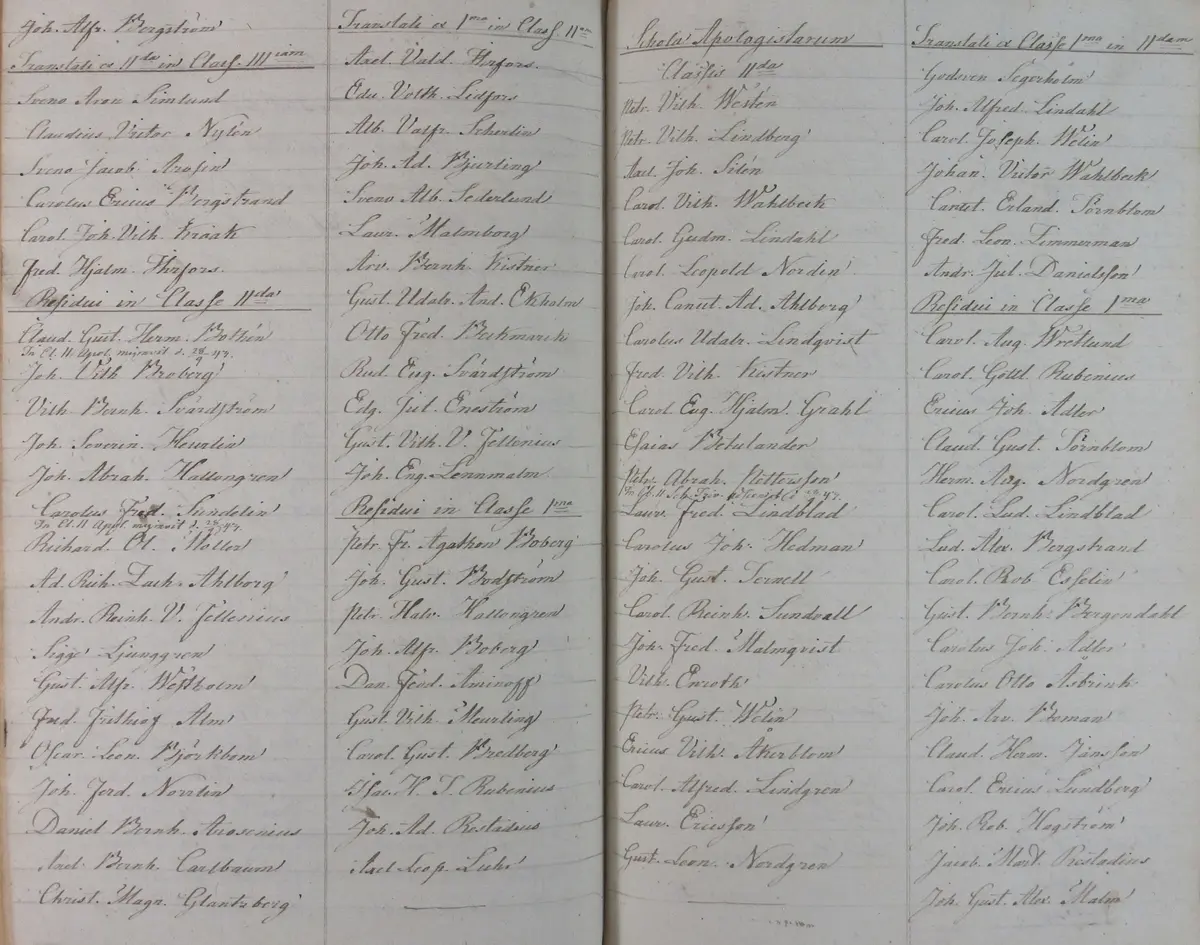 Joh. Alfr. Bergström
Translati ex IIda in Class. IIIiam
Sveno Aron Simlund
Claudius Victor Nylén
Sveno Jacob Arosin
Carolus Ericus Bergstrand
Carol. Joh. Vilh. Kraak
Fred. Hjalm. Thrfors.
Residui in Classe IIda
Claud. Gust. Herm. Bothén
In Cl. II Apol. migravit d. 28/9 47.
Joh. Vilh. Broberg
Vilh. Bernh. Svärdström
Joh. Severin Heurlin
Joh. Abrah. Hallongren
Carolus Fred. Sundelin
In Cl. II Apol. migravit d. 28/9 47.
Richard Ol. Möller
Ad. Rich. Zach. Ahlborg
Andr. Reinh. V. Fellenius
Sigge Ljunggren
Gust. Alfr. Westholm
Fred. Frithiof Alm
Oscar Leon. Björkbom
Joh. Ferd. Norrlin
Daniel Bernh. Arosenius
Axel Bernh. Carlbaum
Christ. Magn. Glantzberg
Translati ex Ima in Class IIam
Axel Vald. Thrfors.
Edv. Volth. Lidfors
Alb. Valfr. Scherlin
Joh. Ad. Bjurling
Sveno Alb. Sederlund
Laur. Malmborg
Arv. Bernh. Kistner
Gust. Udalr. And. Ekholm
Otto Fred. Beckmarck
Rud. Eug. Svärdström
Edg. Jul. Eneström
Gust. Vilh. V. Fellenius
Joh. Eng. Lennmalm
Residui in Classe Ima
Petr. Fr. Agathon Boberg
Joh. Gust. Bodström
Petr. Halv. Hallongren
Joh. Alfr. Boberg
Dan. Ferd. Aminoff
Gust. Vilh. Meurling
Carol. Gust. Bredberg
Isac. H. T. Rubenius
Joh. Ad. Restadius
Axel Leop. Luhr
Schola Apologistarum
Classis IIda
Petr. Vilh. Westén
Petr. Vilh. Lindberg
Axel Joh. Silén
Carol. Vilh. Wahlbeck
Carol. Gudm. Lindahl
Carol. Leopold Nordin
Joh. Canut. Ad. Ahlborg
Carolus Udalr. Lindqvist
Fred. Vilh. Kistner
Carol. Eug. Hjalm. Grahl
Esaias Betulander
Petr. Abrah. Pettersson
In Cl. II 28/9 47.
Laur. Fred. Lindblad
Carolus Joh. Hedman
Joh. Gust. Ternell
Carol. Reinh. Sundvall
Joh. Fred. Malmqvist
Vilh. Enroth
Petr. Gust. Welin
Ericus Vilh. Åkerblom
Carol. Alfred. Lindgren
Laur. Ericsson
Gust. Leon. Nordgren
Translati ex Classe Ima in IIdam
Godsven Segerholm
Joh. Alfred. Lindahl
Carol. Joseph. Welin
Johan. Victor Wahlbeck
Canut. Erland. Törnblom
Fred. Leon. Zimmerman
Andr. Jul. Danielsson
Residui in Classe Ima
Carol. Aug. Wretlund
Carol. Gottl. Rubenius
Ericus Joh. Adler
Claud. Gust. Törnblom
Herm. Aug. Nordgren
Carol. Lud. Lindblad
Lud. Alex. Bergstrand
Carol. Rob Esselin
Gust. Bernh. Bergendahl
Carolus Joh. Adler
Carolus Otto Åsbrink
Joh. Arv. Boman
Claud. Herm. Jansson
Carol. Ericus Lundberg
Joh. Rob. Hagström
Jacob. Mart. Restadius
Joh. Gust. Alex. Malm